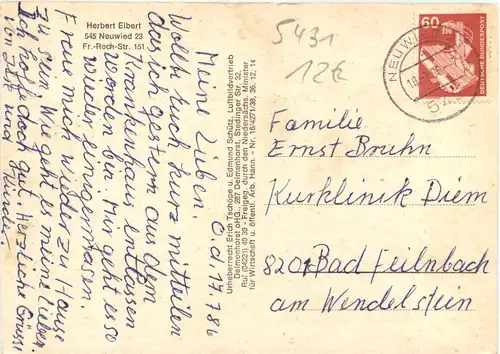 Herbert Elbert
545 Neuwied 23
Fr.-Roch-Str. 151
5431
12€
60
DEUTSCHE BUNDESPOST
NEUWIED
Meine Lieben. O.d 17.7.86
Wollte Euch kurz mitteilen
das ich gestern aus dem
Krankenhaus entlassen
worden bin. Mir geht es so
wieder einigermasen.
Freue mich wieder zu Hause
zu sein. Wie geht es meine Lieben
Ich hoffe doch gut. Herzliche Grüsse
von
und
Urheberrecht Erich Tschöpe u. Edmund Schütz, Luftbildvertrieb
Delmenhorst oHG., 287 Delmenhorst, Stedinger Str. 32,
Ruf (04221) 49 39 - Freigeg. durch den Niedersächs. Minister
für Wirtschaft u. öffentl. Arb. Hann. - Nr. 16/4271/38, 36, 12, 14
Familie
Ernst Bruhn
Kurklinik Diem
8201 Bad Feilnbach
am Wendelstein